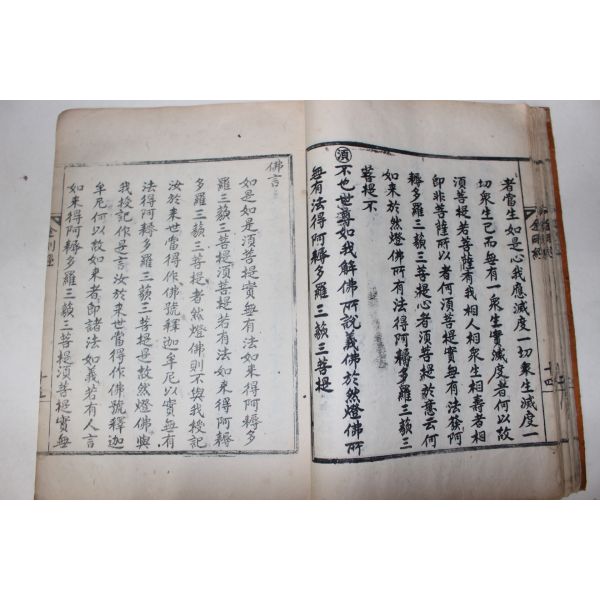 者當生如是心我應滅度一切衆生滅度一
切衆生已而每有一衆生實滅度者何以故
須菩提若菩薩有我相人相衆生相壽者相
即非菩薩所以者何須菩提實每有法發阿
耨多羅三藐三菩提心者須菩提於意云何
如來於然燈佛所有法得阿耨多羅三藐三
菩提不
須 不也世尊如我解佛所說義佛於然燈佛所
每有法得阿耨多羅三藐三菩提
佛言
如是如是須菩提實每有法如來得阿耨多
羅三藐三菩提須菩提若有法如來得阿耨
多羅三藐三菩提者然燈佛則不與我授記
汝於來世當得作佛號釋迦牟尼以實每有
法得阿耨多羅三藐三菩提是故然燈佛與
我授記作是言汝於來世當得作佛號釋迦
牟尼何以故如來者即諸法如義若有人言
如來得阿耨多羅三藐三菩提須菩提實每
金剛經